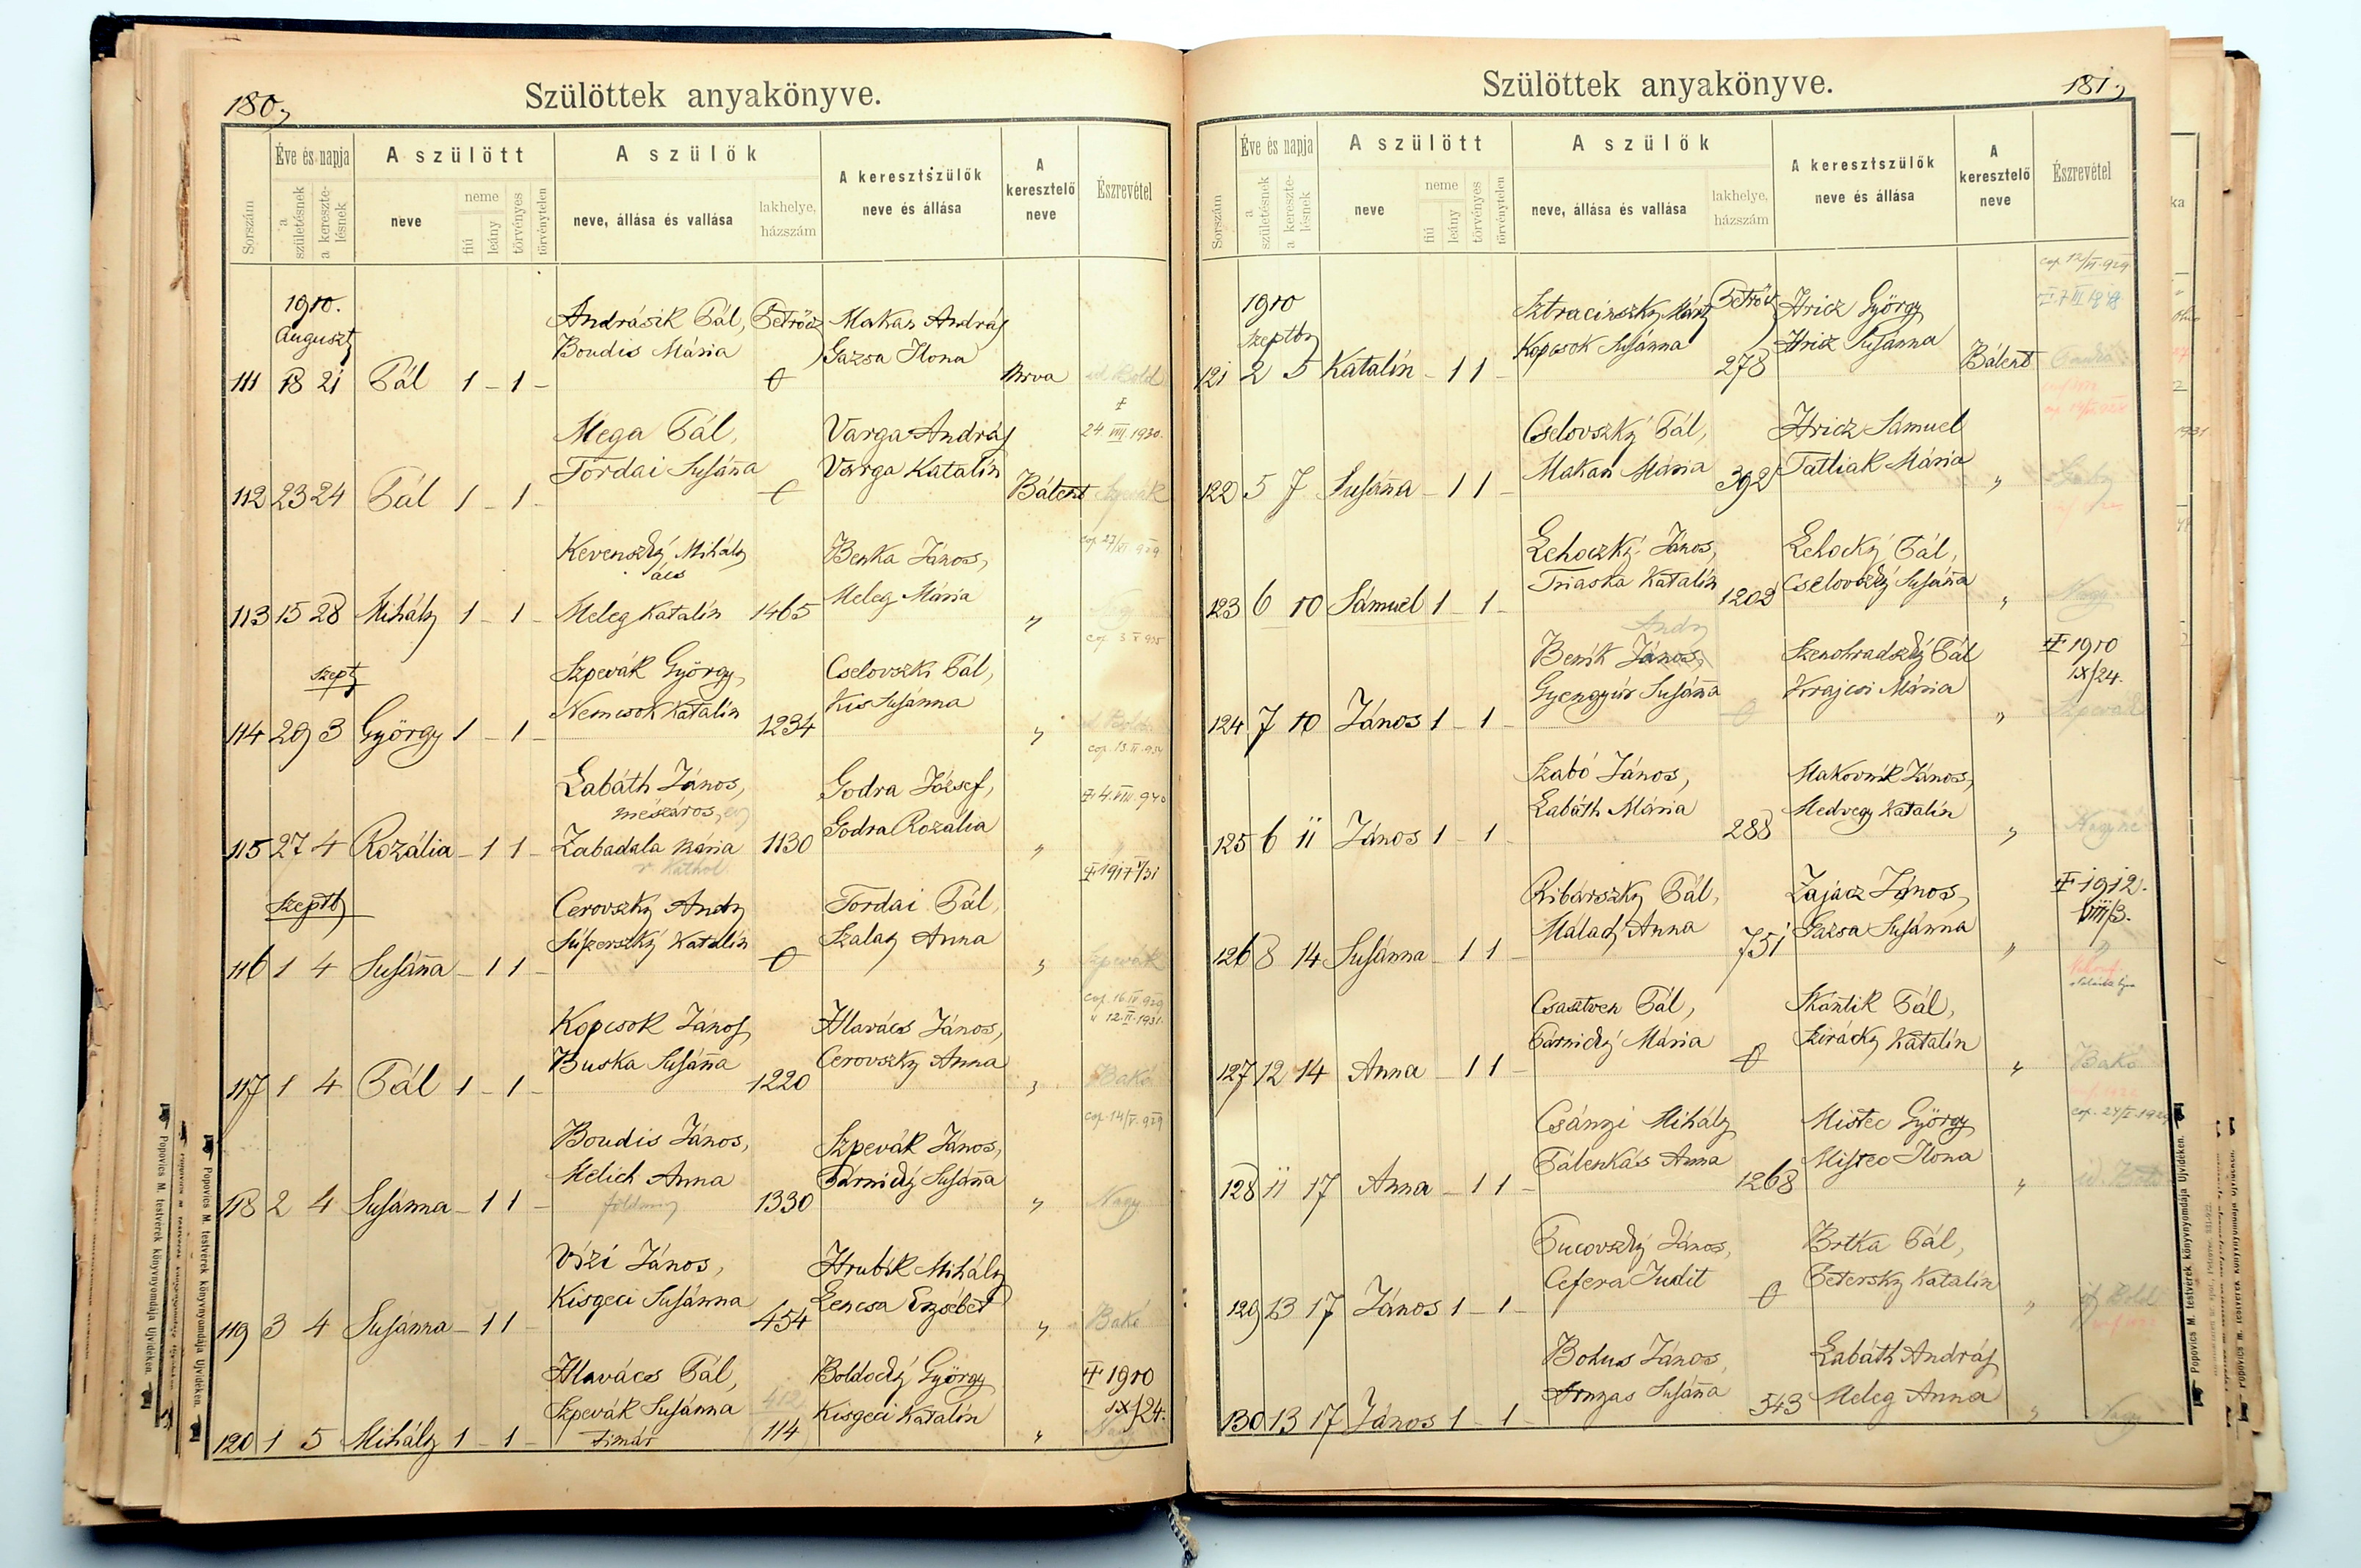 180,
Szülöttek anyakönyve.
Sorszám
Éve és napja
a születésnek
a keresztelésnek
A szülött
neve
neme
fiú
leány
törvényes
törvénytelen
A szülők
neve, állása és vallása
lakhelye, házszám
A keresztszülők neve és állása
A keresztelő neve
Észrevétel
1910.
Auguszt
Andrásik Pál, Petrőcz Makan András
Boudis Mária Gazsa Ilona
111 18 21 Pál 1 - 1 - 0 Mrva
Mega Pál, Varga András
24. VIII. 1930.
Tordai Susánna Varga Katalin
112 23 24 Pál 1 - 1 - 0 Bálent Szpevák
Kevenszky Mihály Benka János,
ács
cop 27/XI 929
113 15 28 Mihály 1 - 1 - Meleg Katalin 1465 Meleg Mária "
cop 3 V 935
szept
Szpevák György, Cselovszki Pál,
Nemcsok Katalin Kis Susánna
114 29 3 György 1 - 1 - 1234 "
cop. 13. II. 934
Labáth János, Godra József,
mészáros,
115 27 4 Rozália - 1 1 - Zabadala Mária 1130 Godra Rozália "
r. Kathol.
1917 V/31
Szeptb
Cerovszky Andr Tordai Pál,
Katalin Szalay Anna
116 1 4 Susánna - 1 1 - 0 " Szpevák
cop. 16. IV. 929
" 12. II. 1931.
Kopcsok János Hlavács János,
Buska Susánna Cerovszky Anna
117 1 4 Pál 1 - 1 - 1220 " Bakó
cop. 14/V. 929
Boudis János, Szpevák János,
Melich Anna Párniczky Susánna
118 2 4 Susánna - 1 1 - 1330 " Nagy
Vízi János, Hrubik Mihály
Kisgeci Susánna Lencsa Erzsébet
119 3 4 Susánna - 1 1 - 454 " Bakó
Hlavács Pál, Boldoczky György 1910
Szpevák Susánna 412 Kisgeci Katalin IX/24.
120 1 5 Mihály 1 - 1 - timár 114 "
Popovics M. testvérek könyvnyomdája Ujvidéken.
181,
Szülöttek anyakönyve.
Sorszám
Éve és napja
a születésnek
a keresztelésnek
A szülött
neve
neme
fiú
leány
törvényes
törvénytelen
A szülők
neve, állása és vallása
lakhelye, házszám
A keresztszülők neve és állása
A keresztelő neve
Észrevétel
cop 12/VI. 929
1910
Szeptb
Petrőcz Hricz György
Kopcsok Susánna Hricz Susánna
121 2 5 Katalin - 1 1 - 278 Bálent
Cselovszky Pál, Hricz Sámuel
Makan Mária Tatliak Mária
122 5 7 Susánna - 1 1 - 392 "
Lehoczky János, Lehoczky Pál,
Triaska Katalin Cselovszky Susánna
123 6 10 Sámuel 1 - 1 - 1202 " Nagy
Andr
Benik János, Szenohradszky Pál 1910
Gyengyúr Susánna Krajcsi Mária IX/24.
124 7 10 János 1 - 1 - 0 " Szpevák
Szabó János, Makovnik János,
Labáth Mária Medvegy Katalin
125 6 11 János 1 - 1 - 288 "
Ribárszky Pál, Zajácz János, 1912.
Malady Anna Gazsa Susánna VIII/3.
126 8 14 Susánna - 1 1 - 751 " "
Csasztven Pál, Skantik Pál,
Párniczky Mária Sziráczky Katalin
127 12 14 Anna - 1 1 - 0 " Bakó
Csányi Mihály Mistec György
Pálenkás Anna Mistec Ilona
128 11 17 Anna - 1 1 - 1268 "
Pucovszky János, Brtka Pál,
Cefera Judit Petersky Katalin
129 13 17 János 1 - 1 - 0 "
Bohus János, Labáth András
Susánna Meleg Anna
130 13 17 János 1 - 1 - 543 " Nagy
Popovics M. testvérek könyvnyomdája Ujvidéken.